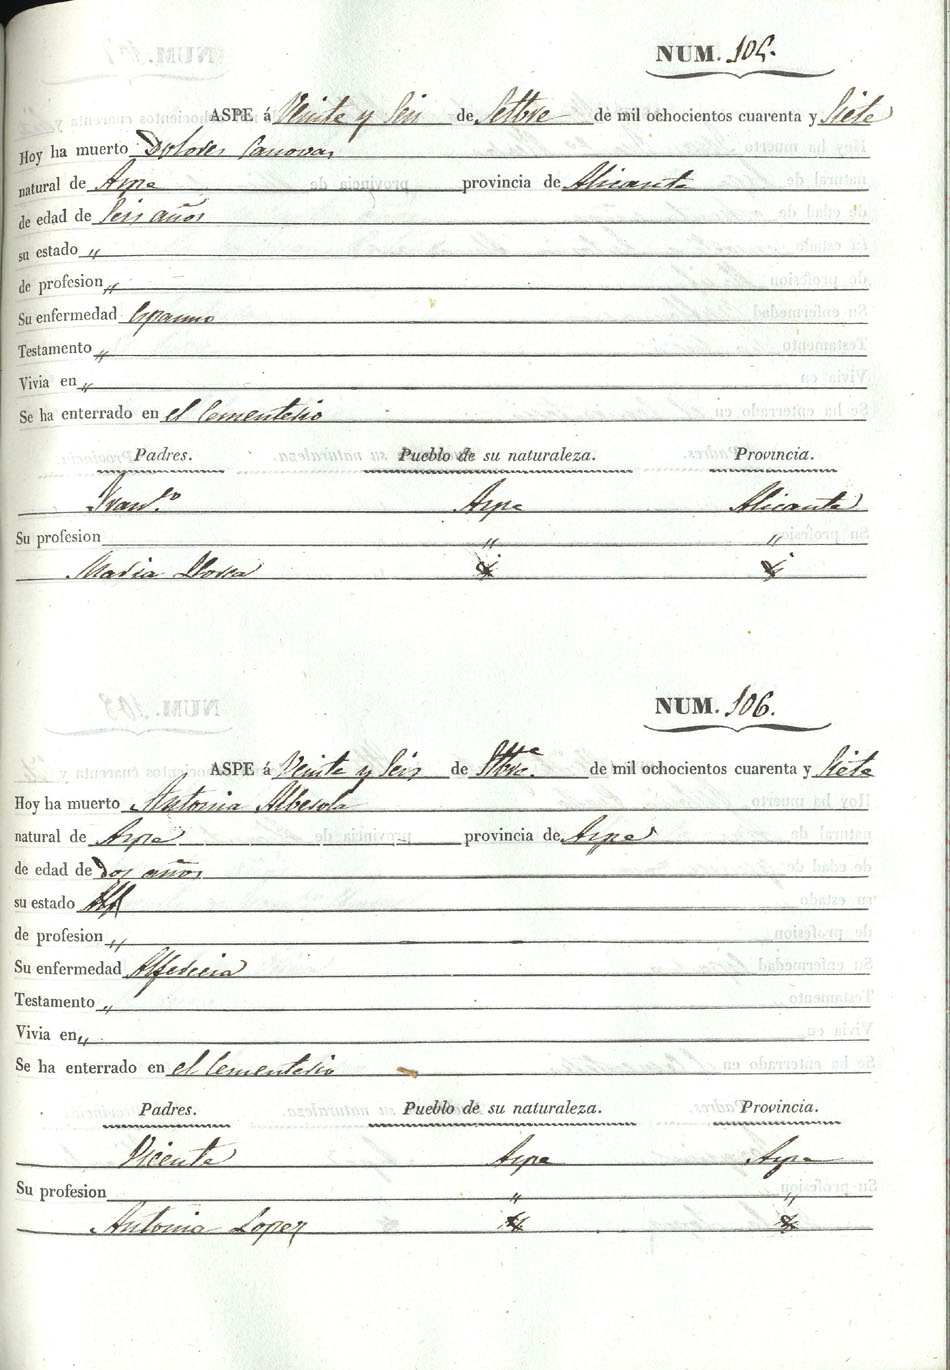 NUM. 105.
ASPE á Veinte y Seis de Setbre de mil ochocientos cuarenta y Siete
Hoy ha muerto Dolores Canovas
natural de Aspe provincia de Alicante
de edad de Seis años
su estado "
de profesion "
Su enfermedad Espasmo
Testamento "
Vivia en "
Se ha enterrado en el Cementerio
Padres. Pueblo de su naturaleza. Provincia.
Franco Aspe Alicante
Su profesion " "
Maria
NUM. 106.
ASPE á Veinte y Seis de Stbre. de mil ochocientos cuarenta y Siete
Hoy ha muerto Antonia Alberola
natural de Aspe provincia de Aspe
de edad de Dos años
su estado
de profesion "
Su enfermedad Alferecia
Testamento "
Vivia en "
Se ha enterrado en el Cementerio
Padres. Pueblo de su naturaleza. Provincia.
Vicente Aspe Aspe
Su profesion " "
Antonia Lopez